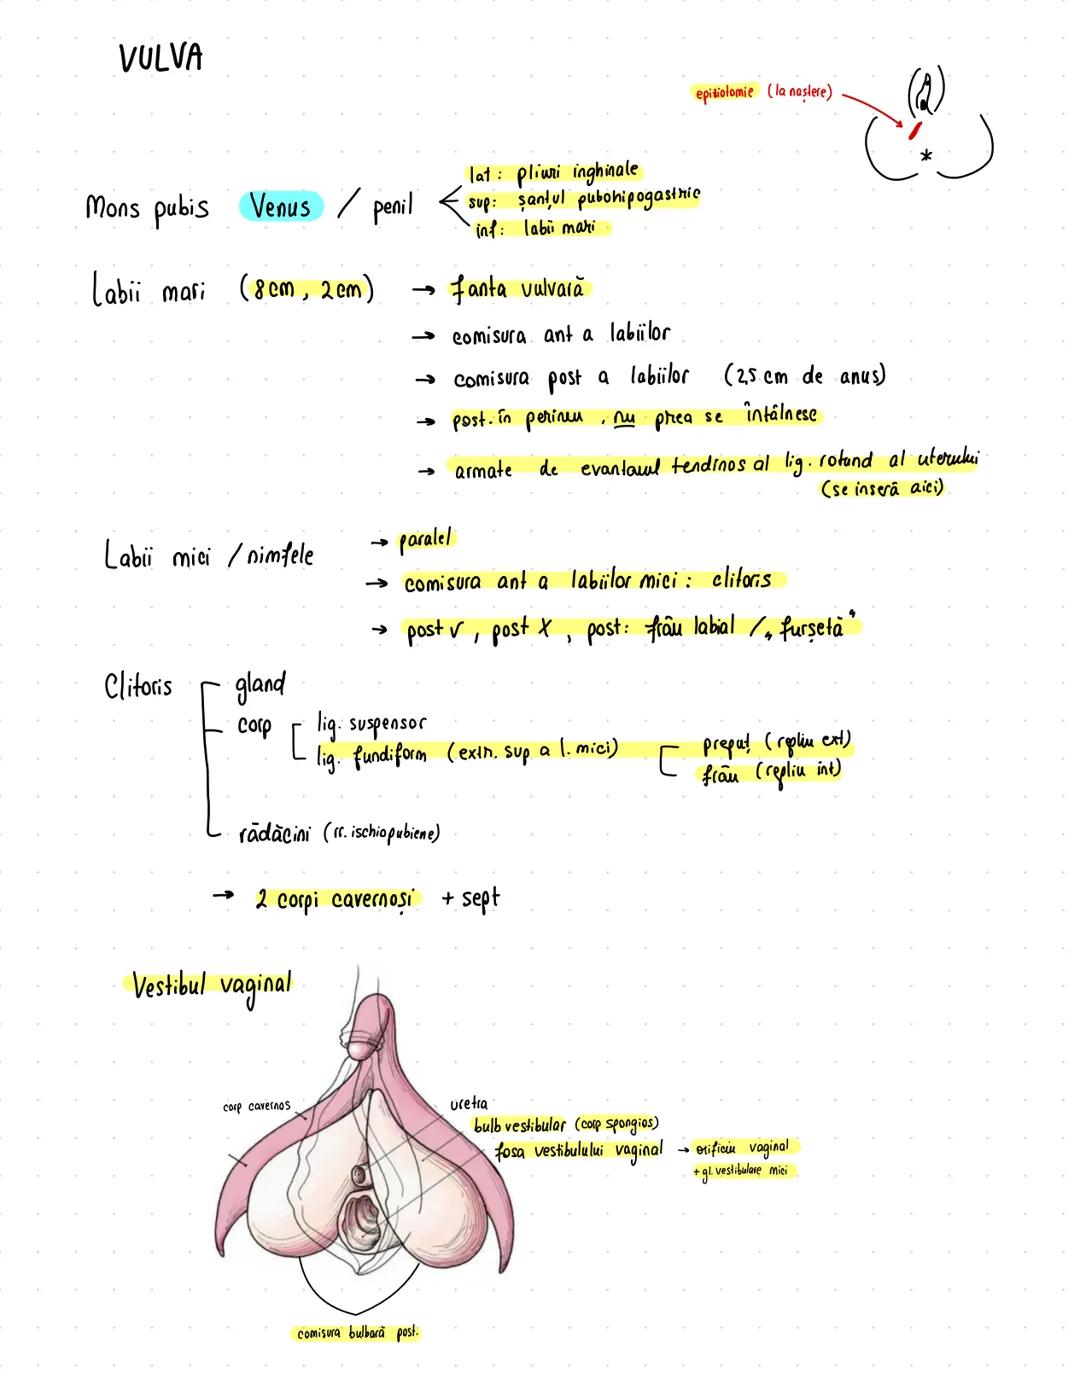 VULVA
epiziotomie (la naștere)
Mons pubis Venus / penil
lat: pliuri inghinale
sup: șanțul pubohipogastric
inf: labii mari
Labii mari (8cm, 2cm) → fanta vulvară
→ comisura ant a labiilor
→ comisura post a labiilor (2,5 cm de anus)
→ post. în perineu, nu prea se întâlnesc
→ armate de evantaiul tendinos al lig. rotund al uterului
(se inseră aici)
Labii mici / nimfele → paralel
→ comisura ant a labiilor mici: clitoris
→ post √, post X, post: frâu labial / „furșetă"
Clitoris
gland
corp
lig. suspensor
lig. fundiform (extr. sup a l. mici)
preput (repliu ext)
frâu (repliu int)
rădăcini (rr. ischiopubiene)
→ 2 corpi cavernoși + sept
Vestibul vaginal
corp cavernos
uretra
bulb vestibular (corp spongios)
fosa vestibulului vaginal → orificiu vaginal
+ gl. vestibulare mici
comisura bulbară post.